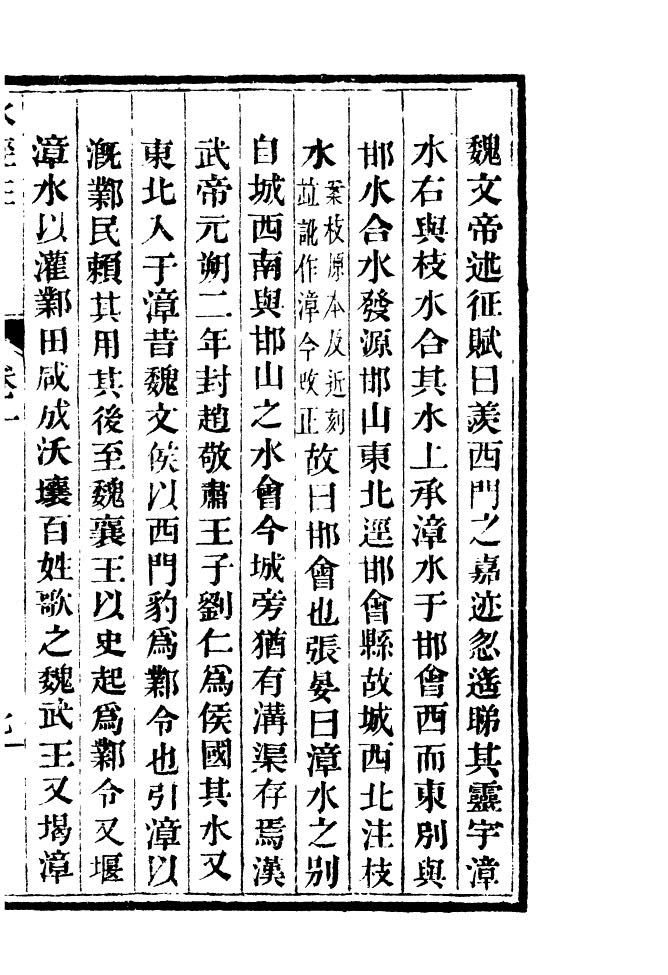 魏文帝述征賦曰羨西門之嘉迹忽遙睇其靈宇漳
水右與枝水合其水上承漳水于邯會西而東別與
邯水合水發源邯山東北逕邯會縣故城西北注枝
水案枝原本及近刻並訛作漳今改正故曰邯會也張晏曰漳水之別
自城西南與邯山之水會今城旁猶有溝渠存焉漢
武帝元朔二年封趙敬肅王子劉仁爲侯國其水又
東北入于漳昔魏文侯以西門豹爲鄴令也引漳以
溉鄴民賴其用其後至魏襄王以史起爲鄴令又堰
漳水以灌鄴田咸成沃壤百姓歌之魏武王又堨漳
水經注
卷十